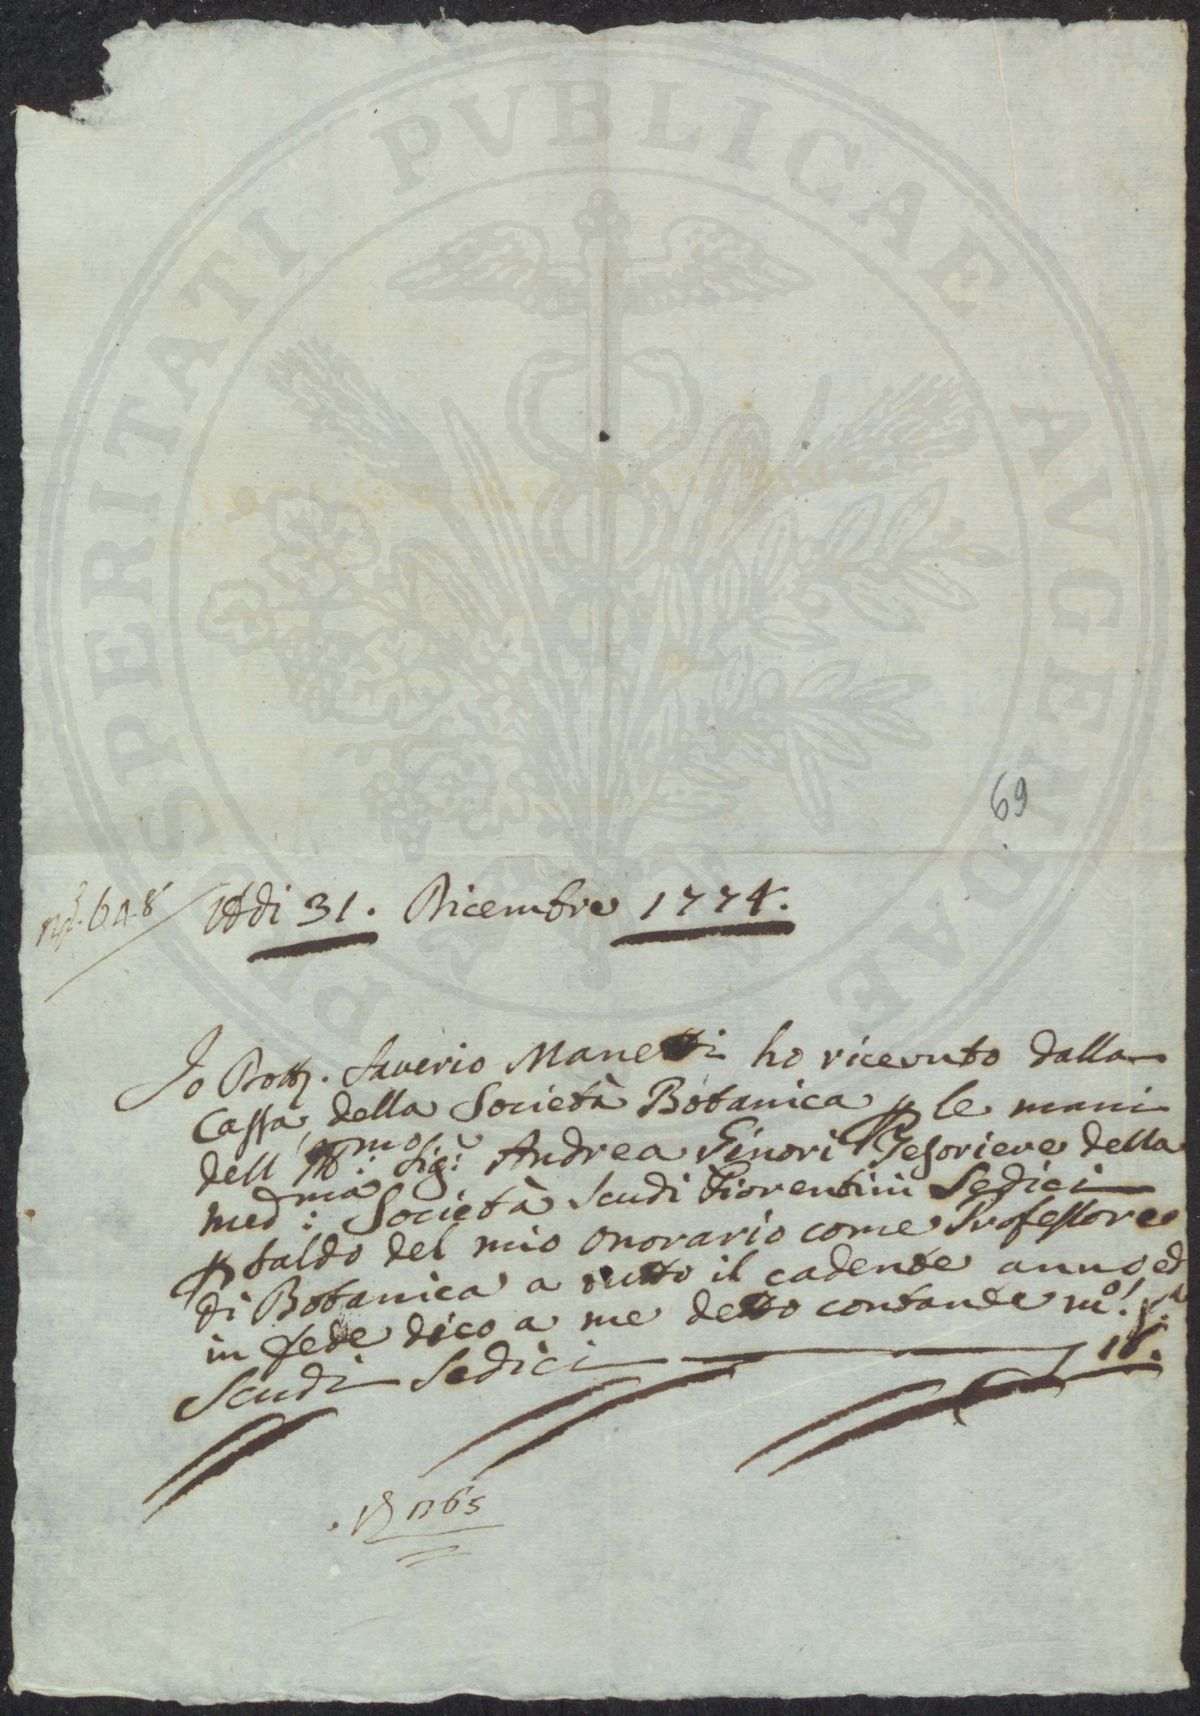 PROSPERITATI PVBLICAE AVGENDAE
69
648
Addi 31. Dicembre 1774.
Jo Dott. Saverio Manetti ho ricevuto dalla
Cassa della Società Botanica p le mani
dell' Ill.mo Sig.r Andrea Ginori Tesoriere della
med.ma: Società Scudi Fiorentini Sedici
p saldo del mio onorario come Professore
di Botanica a tutto il cadente anno ed
in fede dico a me detto contante
Scudi Sedici 16.
1365